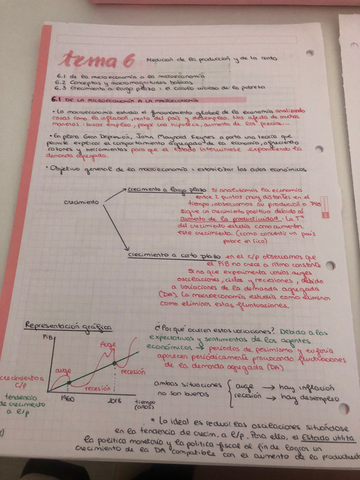 tema 6 Medición de la producción y de la renta
6.1 De la microeconomía a la macroeconomía
6.2 Conceptos y macromagnitudes básicas
6.3 Crecimiento a largo plazo: el círculo vicioso de la pobreza
6.1 DE LA MICROECONOMÍA A LA MACROECONOMÍA
• La macroeconomía estudia el funcionamiento global de la economía analizando
cosas como la inflación, renta del país y desempleo. Nos afecta de muchas
maneras: buscar empleo, pagar una hipoteca, aumento de los precios...
• En plena Gran Depresión, John Maynard Keynes aporta una teoría que
permite explicar el comportamiento agregado de la economía, ofreciendo
razones y mecanismos para que el estado interviniese expandiendo la
demanda agregada.
• Objetivo general de la macroeconomía: estabilizar los ciclos económicos
crecimiento a largo plazo: Si analizamos la economía
entre 2 puntos muy distantes en el
tiempo, observamos su producción o PIB
sigue un crecimiento positivo debido al
aumento de la productividad. La Tª
del crecimiento estudia como aumentar
este crecimiento (como convertir un país
pobre en rico)
crecimiento
crecimiento a corto plazo: en el c/p observamos que
el PIB no crece a ritmo constante
si no que experimenta varios auges
oscilaciones, ciclos y recesiones, debido
a variaciones de la demanda agregada
(DA). La macroeconomía estudia como eliminar
como eliminar estas fluctuaciones.
Representación gráfica
PIB
auge
Auge
recesión
recesión
crecimiento
c/p
tendencia
de crecimiento
a l/p
1960
2018
tiempo
(años)
¿Por qué ocurren estas variaciones? Debido a las
expectativas y sentimientos de los agentes
económicos → periodos de pesimismo y euforia
aparecen periódicamente provocando fluctuaciones
de la demanda agregada (DA)
ambas situaciones
no son buenas
auge → hay inflación
recesión → hay desempleo
• Lo ideal es reducir las oscilaciones situándose
en la tendencia de crecim. a l/p. Para ello, el Estado utiliza
la política monetaria y la política fiscal al fin de lograr un
crecimiento de la DA compatible con el aumento de la